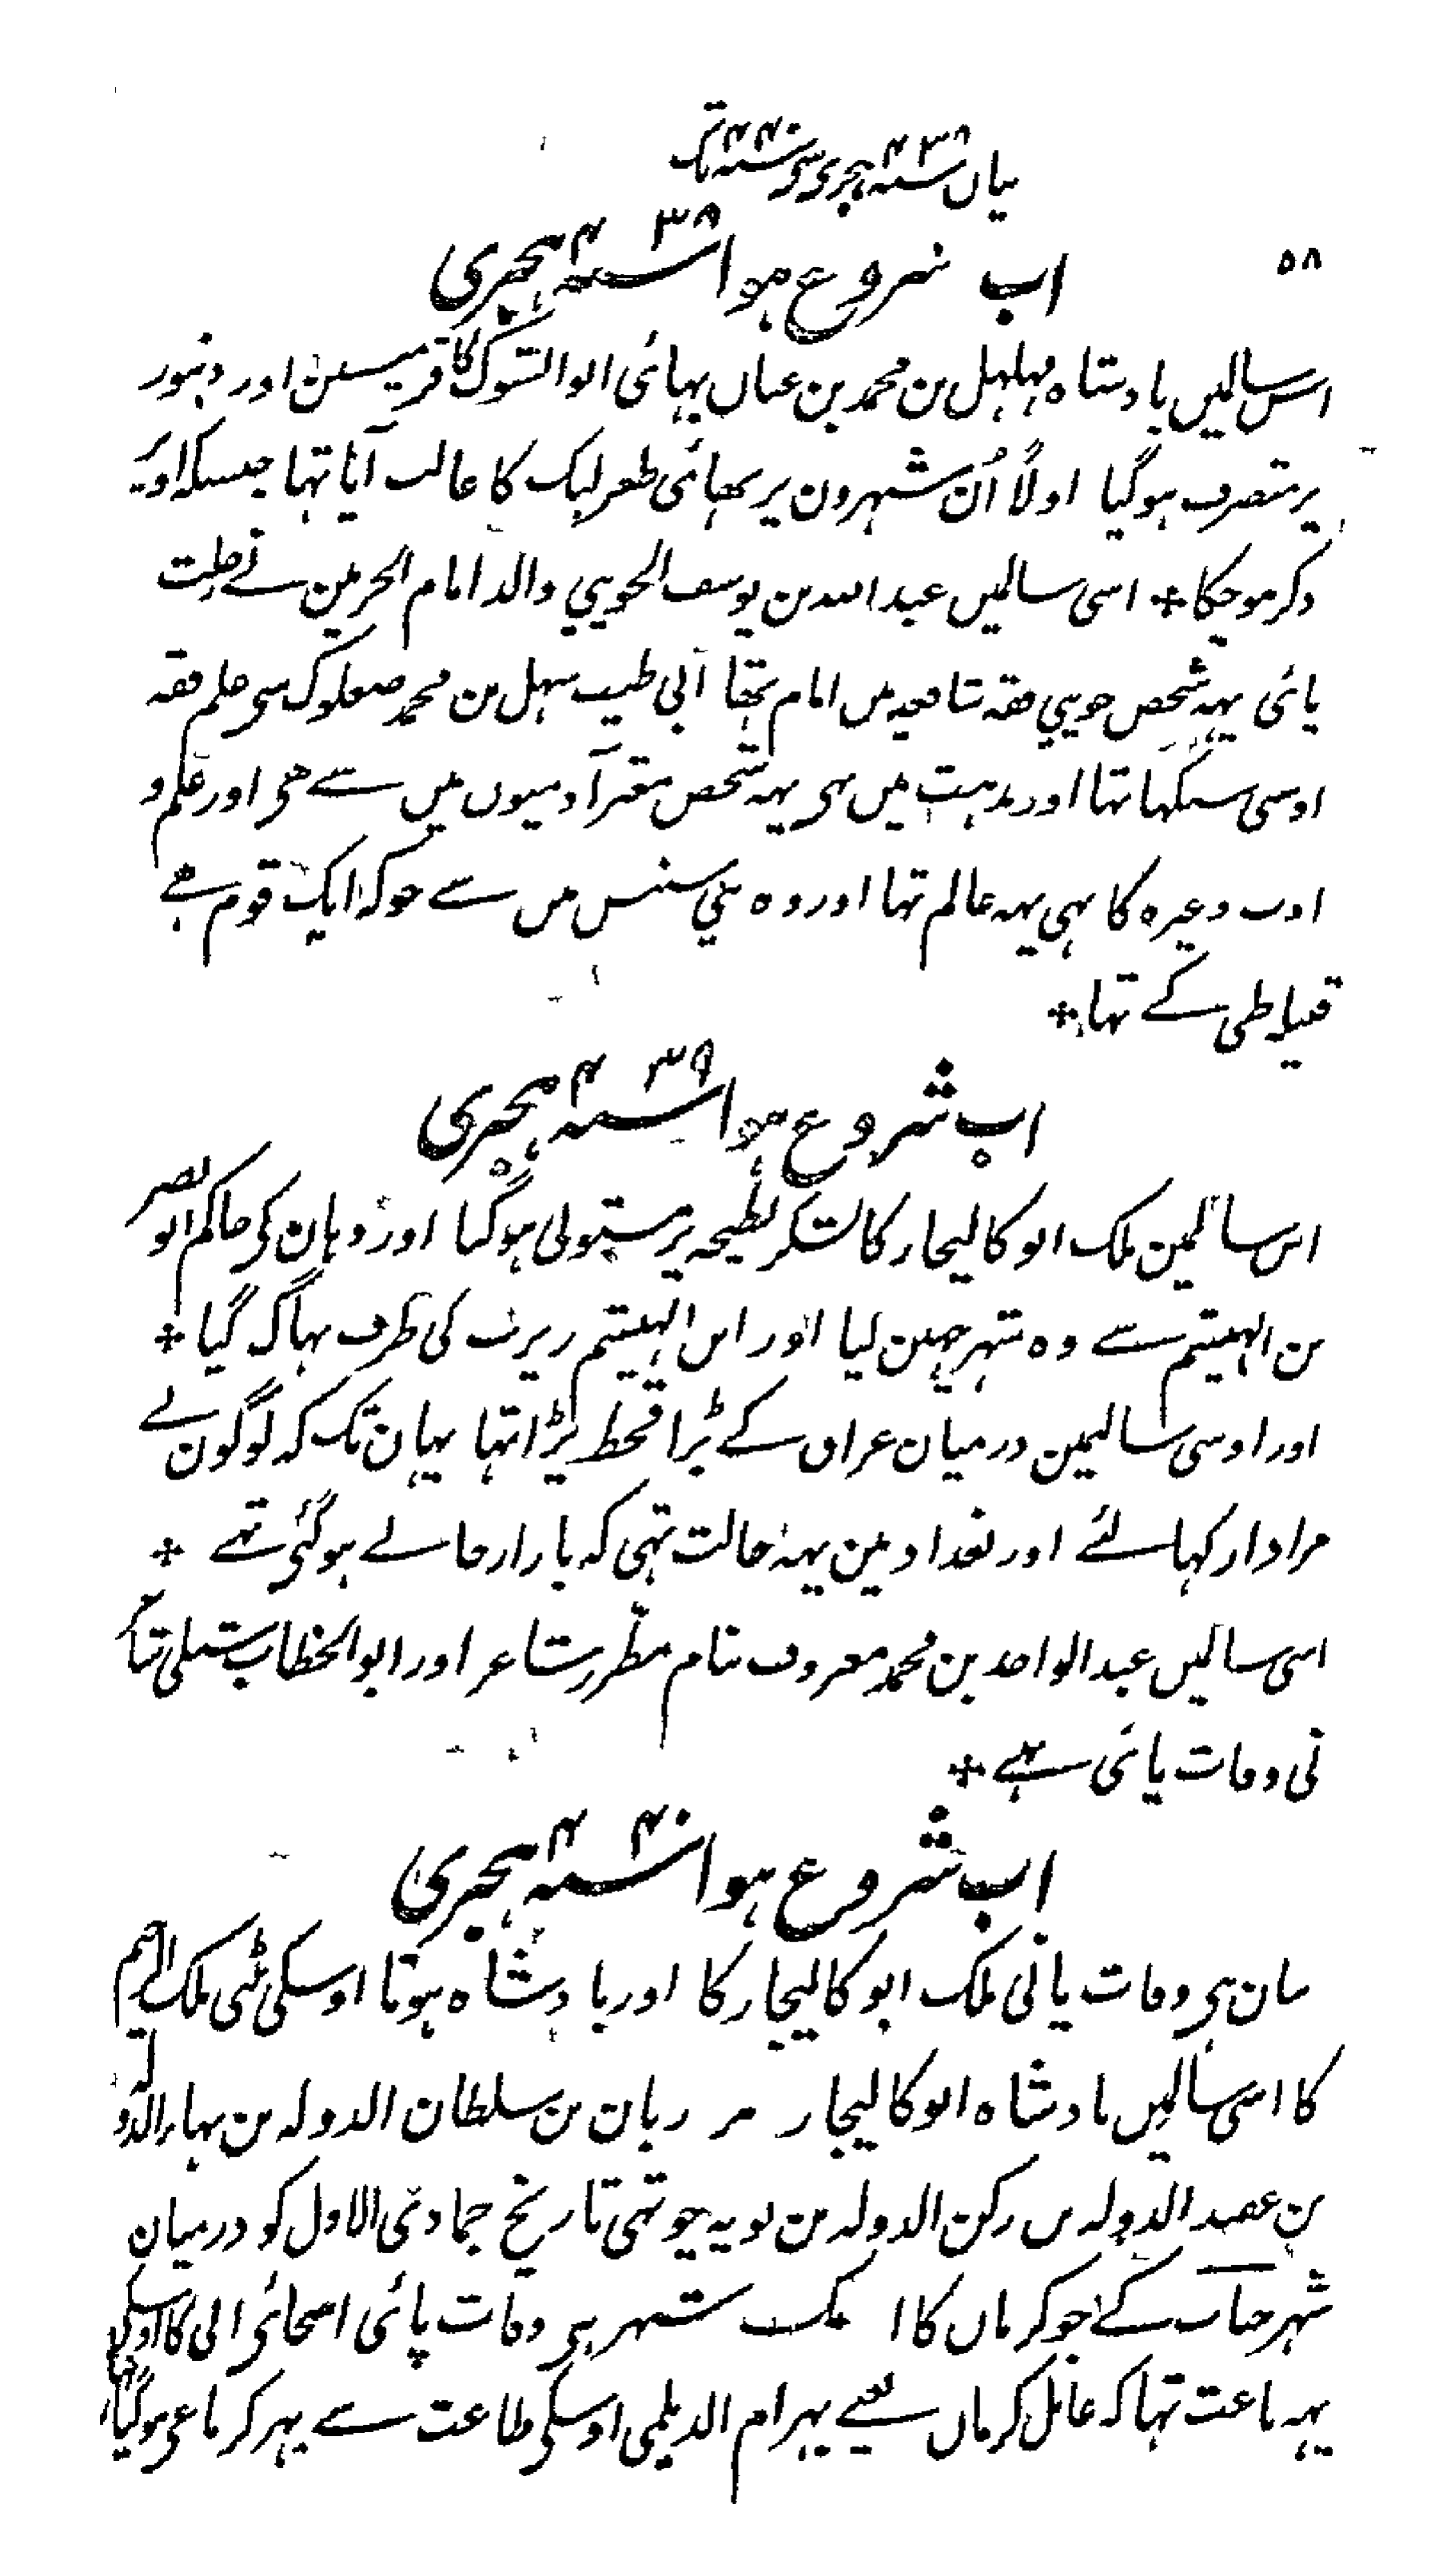 بیان سنہ ۴۳۸ ہجری سی سنہ ۴۴۰ تک
۵۸
اب شروع ہوا سنہ ۴۳۸ ہجری
اس سالمیں بادشاہ مہلہل بن محمد بن عنان بہائی ابو الشوک کا قرمیسین اور دینور
پر متصرف ہوگیا اولاً اُن شہرون پر بھائی طغرلبک کا غالب آیا تہا جیسکہ اوپر
ذکر ہوچکا ٭ اسی سالمیں عبد اللہ بن یوسف الجوینی والد امام الحرمین نے رحلت
پائی یہہ شخص جوینی فقہ شافعیہ میں امام تھا ابی طیب سہل بن محمد صعلوک سی علم فقہ
اوسی سیکہا تہا اور مذہب میں بہی یہہ شخص معتبر آدمیوں میں سے ھی اور علم و
ادب وغیرہ کا بہی یہہ عالم تہا اور وہ بنی سنبس میں سے جوکہ ایک قوم ہے
قبیلہ طی کے تہا ٭
اب شروع ہوا سنہ ۴۳۹ ہجری
اس سالمین ملک ابو کالیجار کا لشکر بطیحہ پر مستولی ہوگیا اور وہان کی حاکم ابو نصر
بن الہیثم سے وہ شہر چہین لیا اور ابن الہیثم زبرب کی طرف بہاگ گیا ٭
اور اوسی سالیمین درمیان عراق کے بڑا قحط پڑا تہا یہان تک کہ لوگون نے
مرادار کہا لئے اور بغداد مین یہہ حالت تہی کہ بازار خالے ہوگئی تہے ٭
اسی سالیں عبد الواحد بن محمد معروف بنام مطرز شاعر اور ابو الخطاب شبلی شاعر
نی وفات پائی ہے ٭
اب شروع ہوا سنہ ۴۴۰ ہجری
بیان ہی وفات پانی ملک ابو کالیجار کا اور بادشاہ ہونا اوسکی بٹی ملک الرحیم
کا اسی سالیں بادشاہ ابو کالیجار مرزبان بن سلطان الدولہ بن بہاء الدولہ
بن عضد الدولہ بن رکن الدولہ بن بویہ چوتہی تاریخ جمادی الاول کو درمیان
شہر جناب کے جو کرماں کا ایک شہر ہی وفات پائی اسجائی الی کا اوسکی
یہہ باعث تہا کہ عامل کرماں یعنے بہرام الدیلمی اوسکی طاعت سے پہر کر باغی ہوگیا تہا